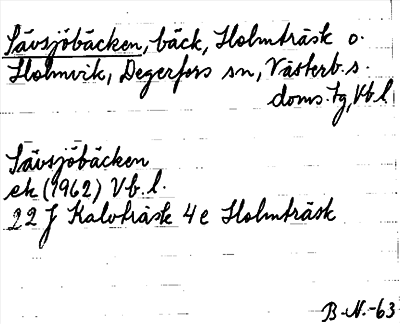 Sävsjöbäcken, bäck, Holmträsk o.
Holmvik, Degerfors sn, Västerb. s.
doms. tg, Vb. l
Sävsjöbäcken
ek (1962) Vb. l.
22 J Kalvträsk 4e Holmträsk
B-N.-63